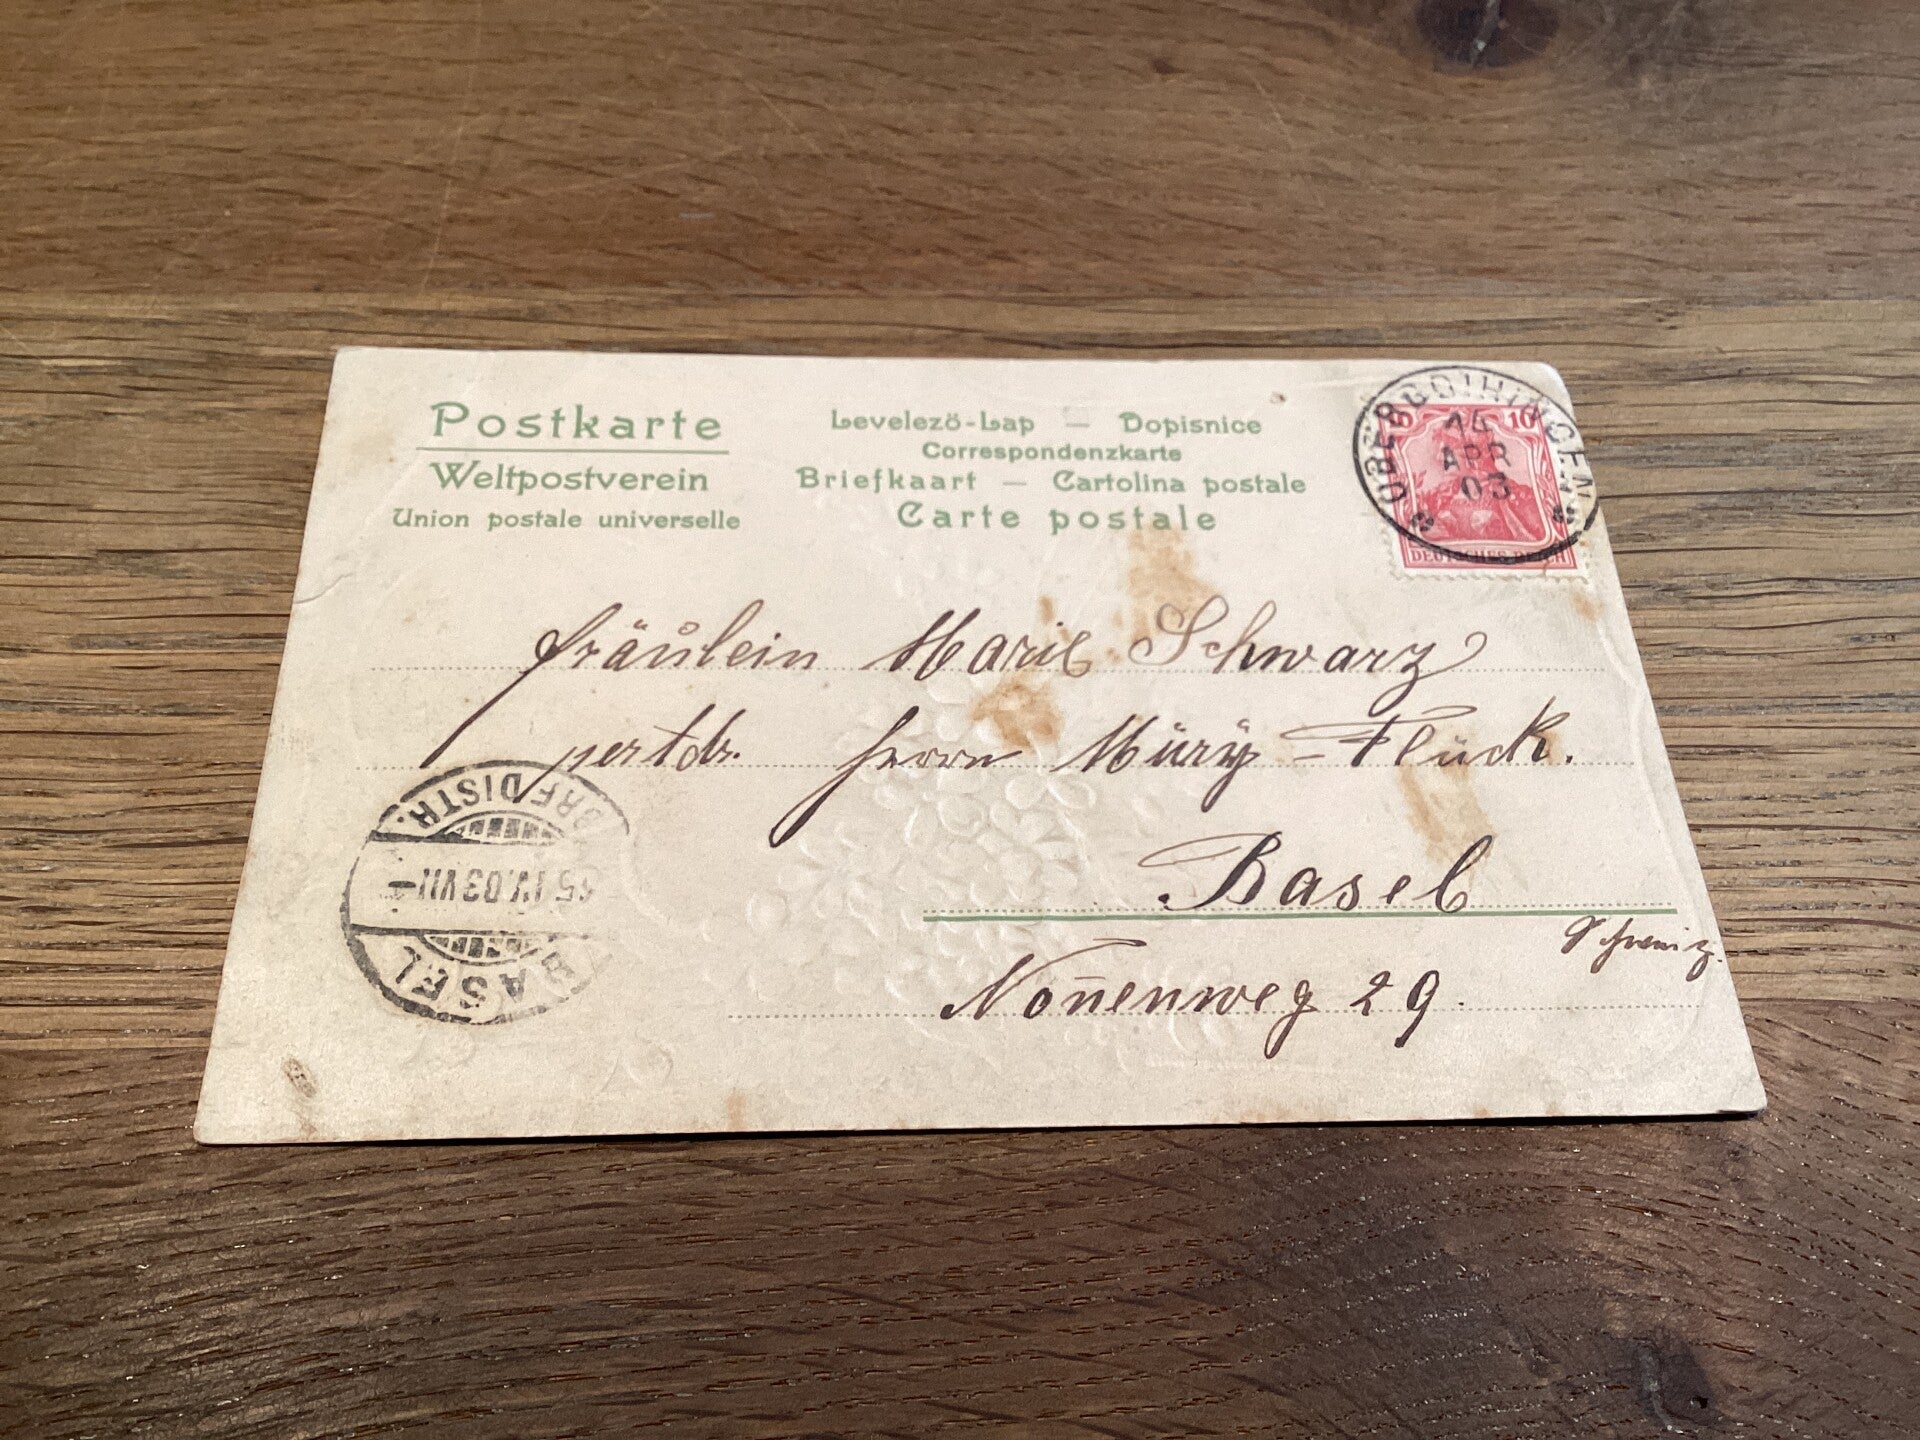 Postkarte
Weltpostverein
Union postale universelle
Levelező-Lap — Dopisnice
Correspondenzkarte
Briefkaart — Cartolina postale
Carte postale
14
APR
03
10
DEUTSCHES REICH
Fräulein Marie Schwarz
Herrn Müry-Flück.
Basel
Schweiz.
Non̄enweg 29.
DISTR.
IV.03 VII
BASEL